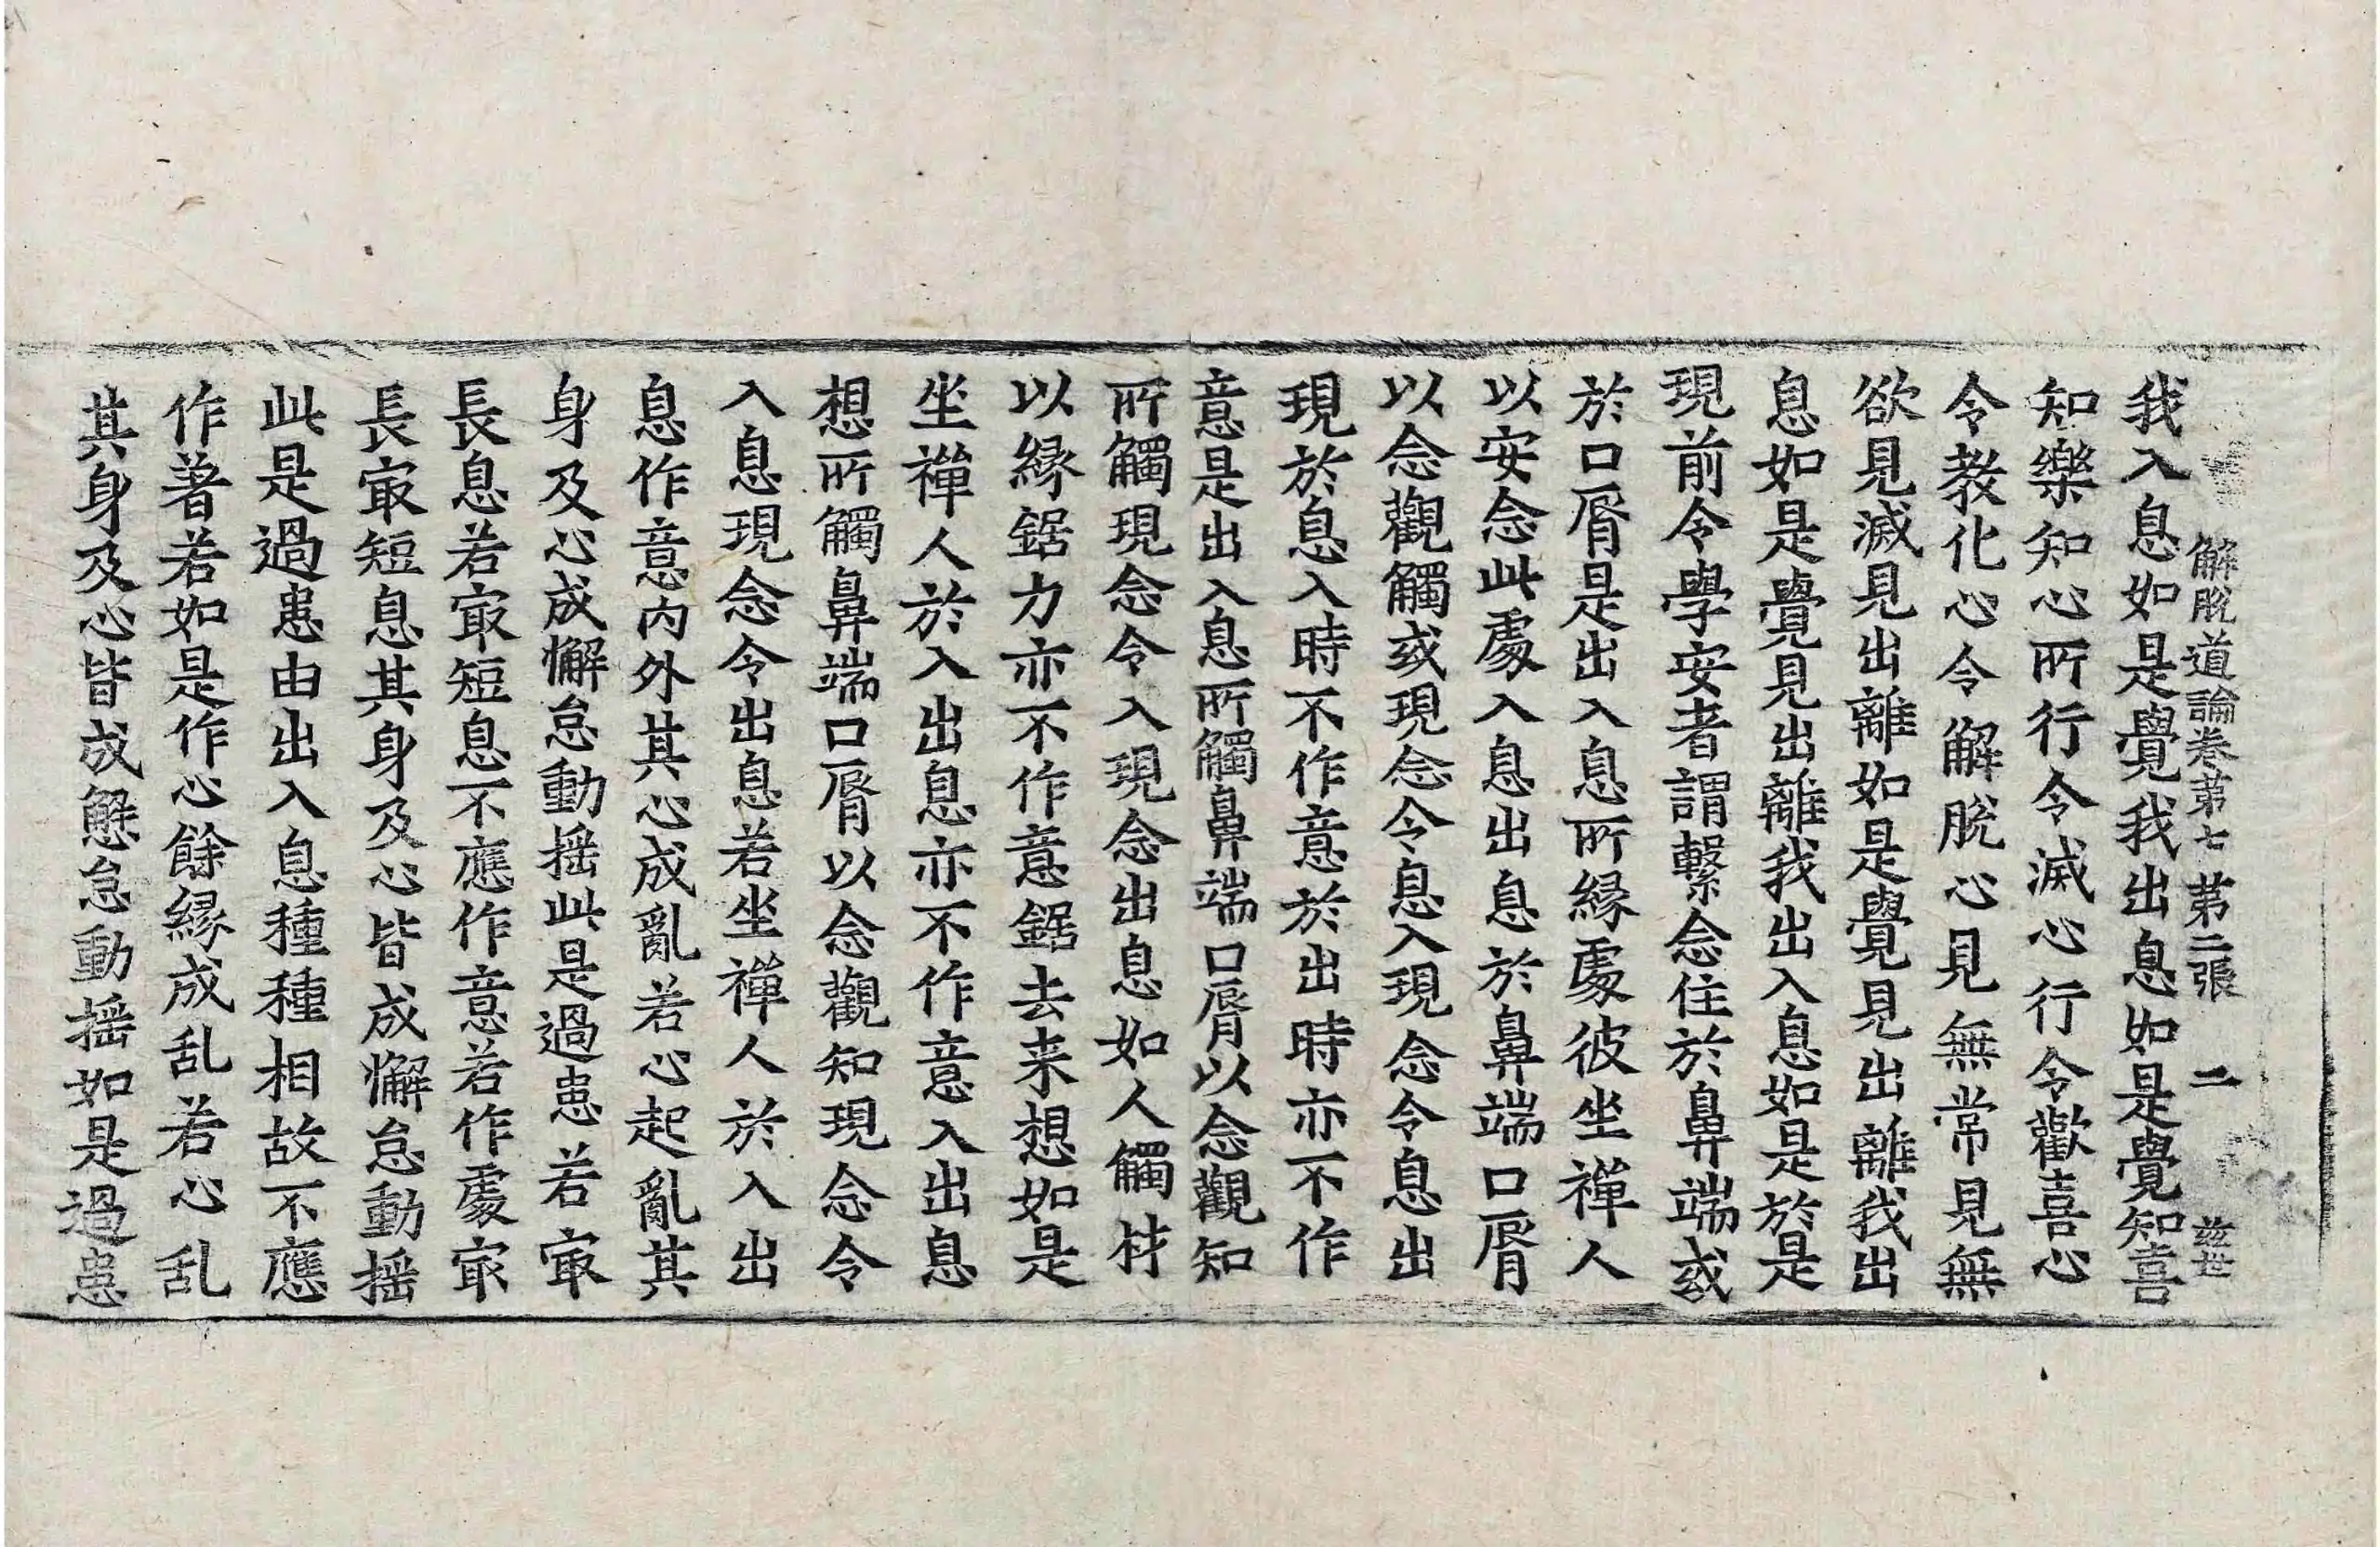 解脫道論卷第七 第二張 二 玆世
我入息如是覺我出息如是覺知喜
知樂知心所行令滅心行令歡喜心
令教化心令解脫心見無常見無
欲見滅見出離如是覺見出離我出
息如是覺見出離我出入息如是於是
現前令學安者謂繫念住於鼻端或
於口脣是出入息所縁處彼坐禪人
以安念此處入息出息於鼻端口脣
以念觀觸或現念令息入現念令息出
現於息入時不作意於出時亦不作
意是出入息所觸鼻端口脣以念觀知
所觸現念令入現念出息如人觸材
以縁鋸力亦不作意鋸去来想如是
坐禪人於入出息亦不作意入出息
想所觸鼻端口脣以念觀知現念令
入息現念令出息若坐禪人於入出
息作意内外其心成亂若心起亂其
身及心成懈怠動揺此是過患若㝡
長息若㝡短息不應作意若作處㝡
長㝡短息其身及心皆成懈怠動揺
此是過患由出入息種種相故不應
作著若如是作心餘縁成乱若心乱
其身及心皆成懈怠動揺如是過患